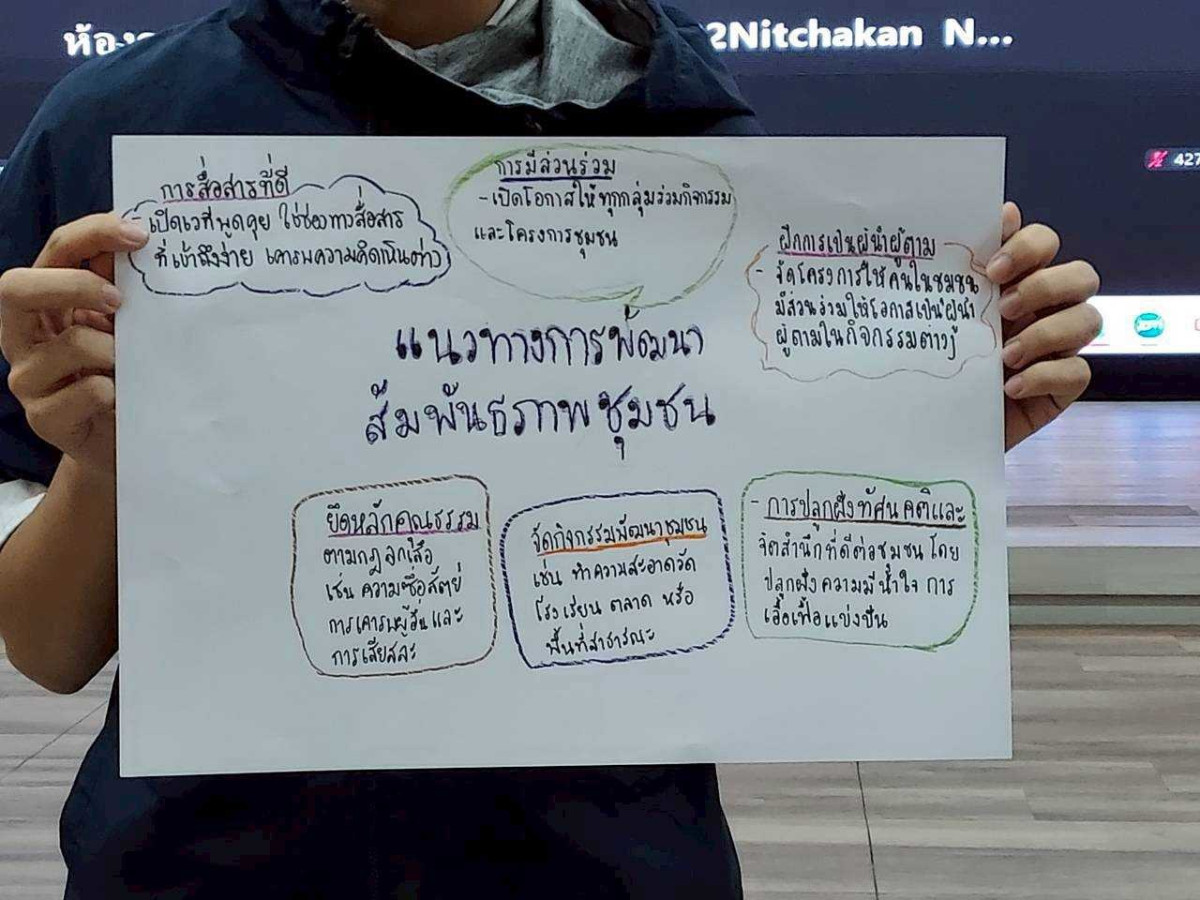 2Nitchakan N...
427
การสื่อสารที่ดี
- เปิดเวทีพูดคุย ใช้ช่องทางสื่อสาร
ที่เข้าถึงง่าย เคารพความคิดเห็นต่าง
การมีส่วนร่วม
- เปิดโอกาสให้ทุกกลุ่มร่วมกิจกรรม
และโครงการชุมชน
ฝึกการเป็นผู้นำผู้ตาม
- จัดโครงการให้คนในชุมชน
มีส่วนร่วมให้โอกาสเป็นผู้นำ
ผู้ตามในกิจกรรมต่างๆ
แนวทางการพัฒนา
สัมพันธภาพชุมชน
ยึดหลักคุณธรรม
ตามกฎลูกเสือ
เช่น ความซื่อสัตย์
การเคารพผู้อื่นและ
การเสียสละ
จัดกิจกรรมพัฒนาชุมชน
เช่น ทำความสะอาดวัด
โรงเรียน ตลาด หรือ
พื้นที่สาธารณะ
- การปลูกฝังทัศนคติและ
จิตสำนึกที่ดีต่อชุมชน โดย
ปลูกฝังความมีน้ำใจ การ
เอื้อเฟื้อแบ่งปัน